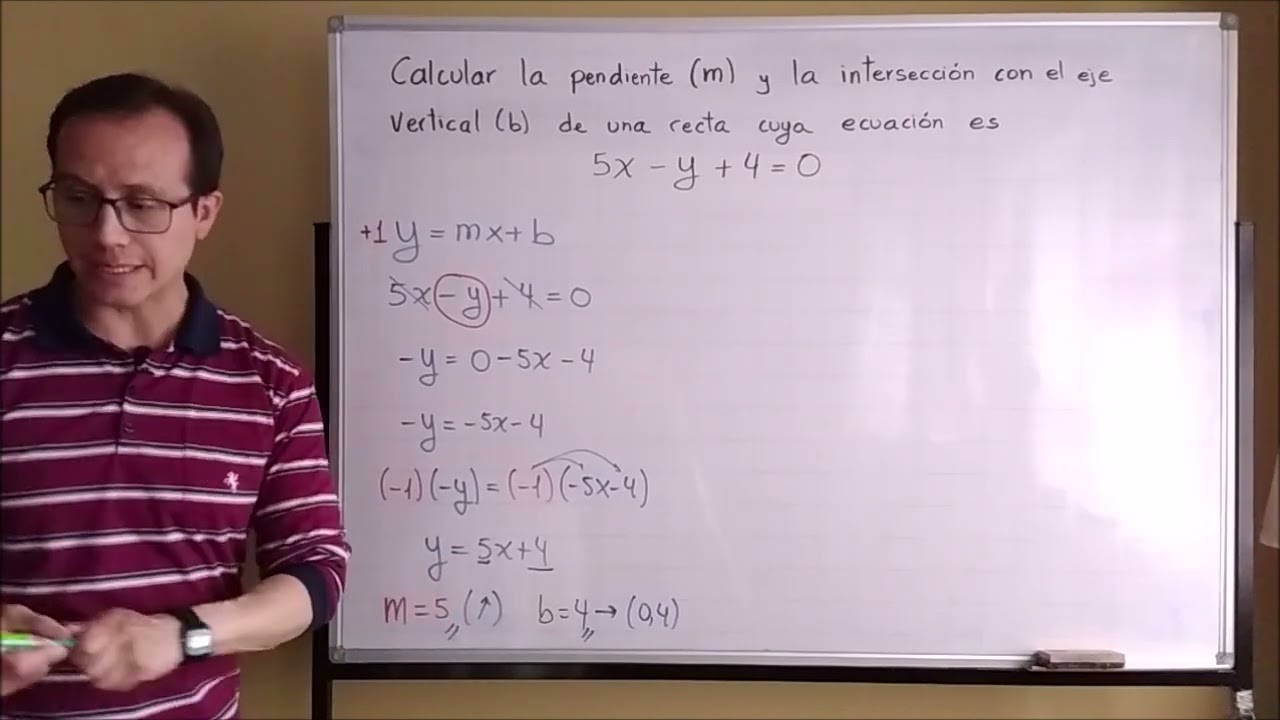 Calcular la pendiente (m) y la intersección con el eje
vertical (b) de una recta cuya ecuación es
5x - y + 4 = 0
+1 y = mx + b
5x - y + 4 = 0
- y = 0 - 5x - 4
- y = - 5x - 4
(-1) (-y) = (-1) (-5x-4)
y = 5x + 4
m = 5 (↑) b = 4 → (0,4)